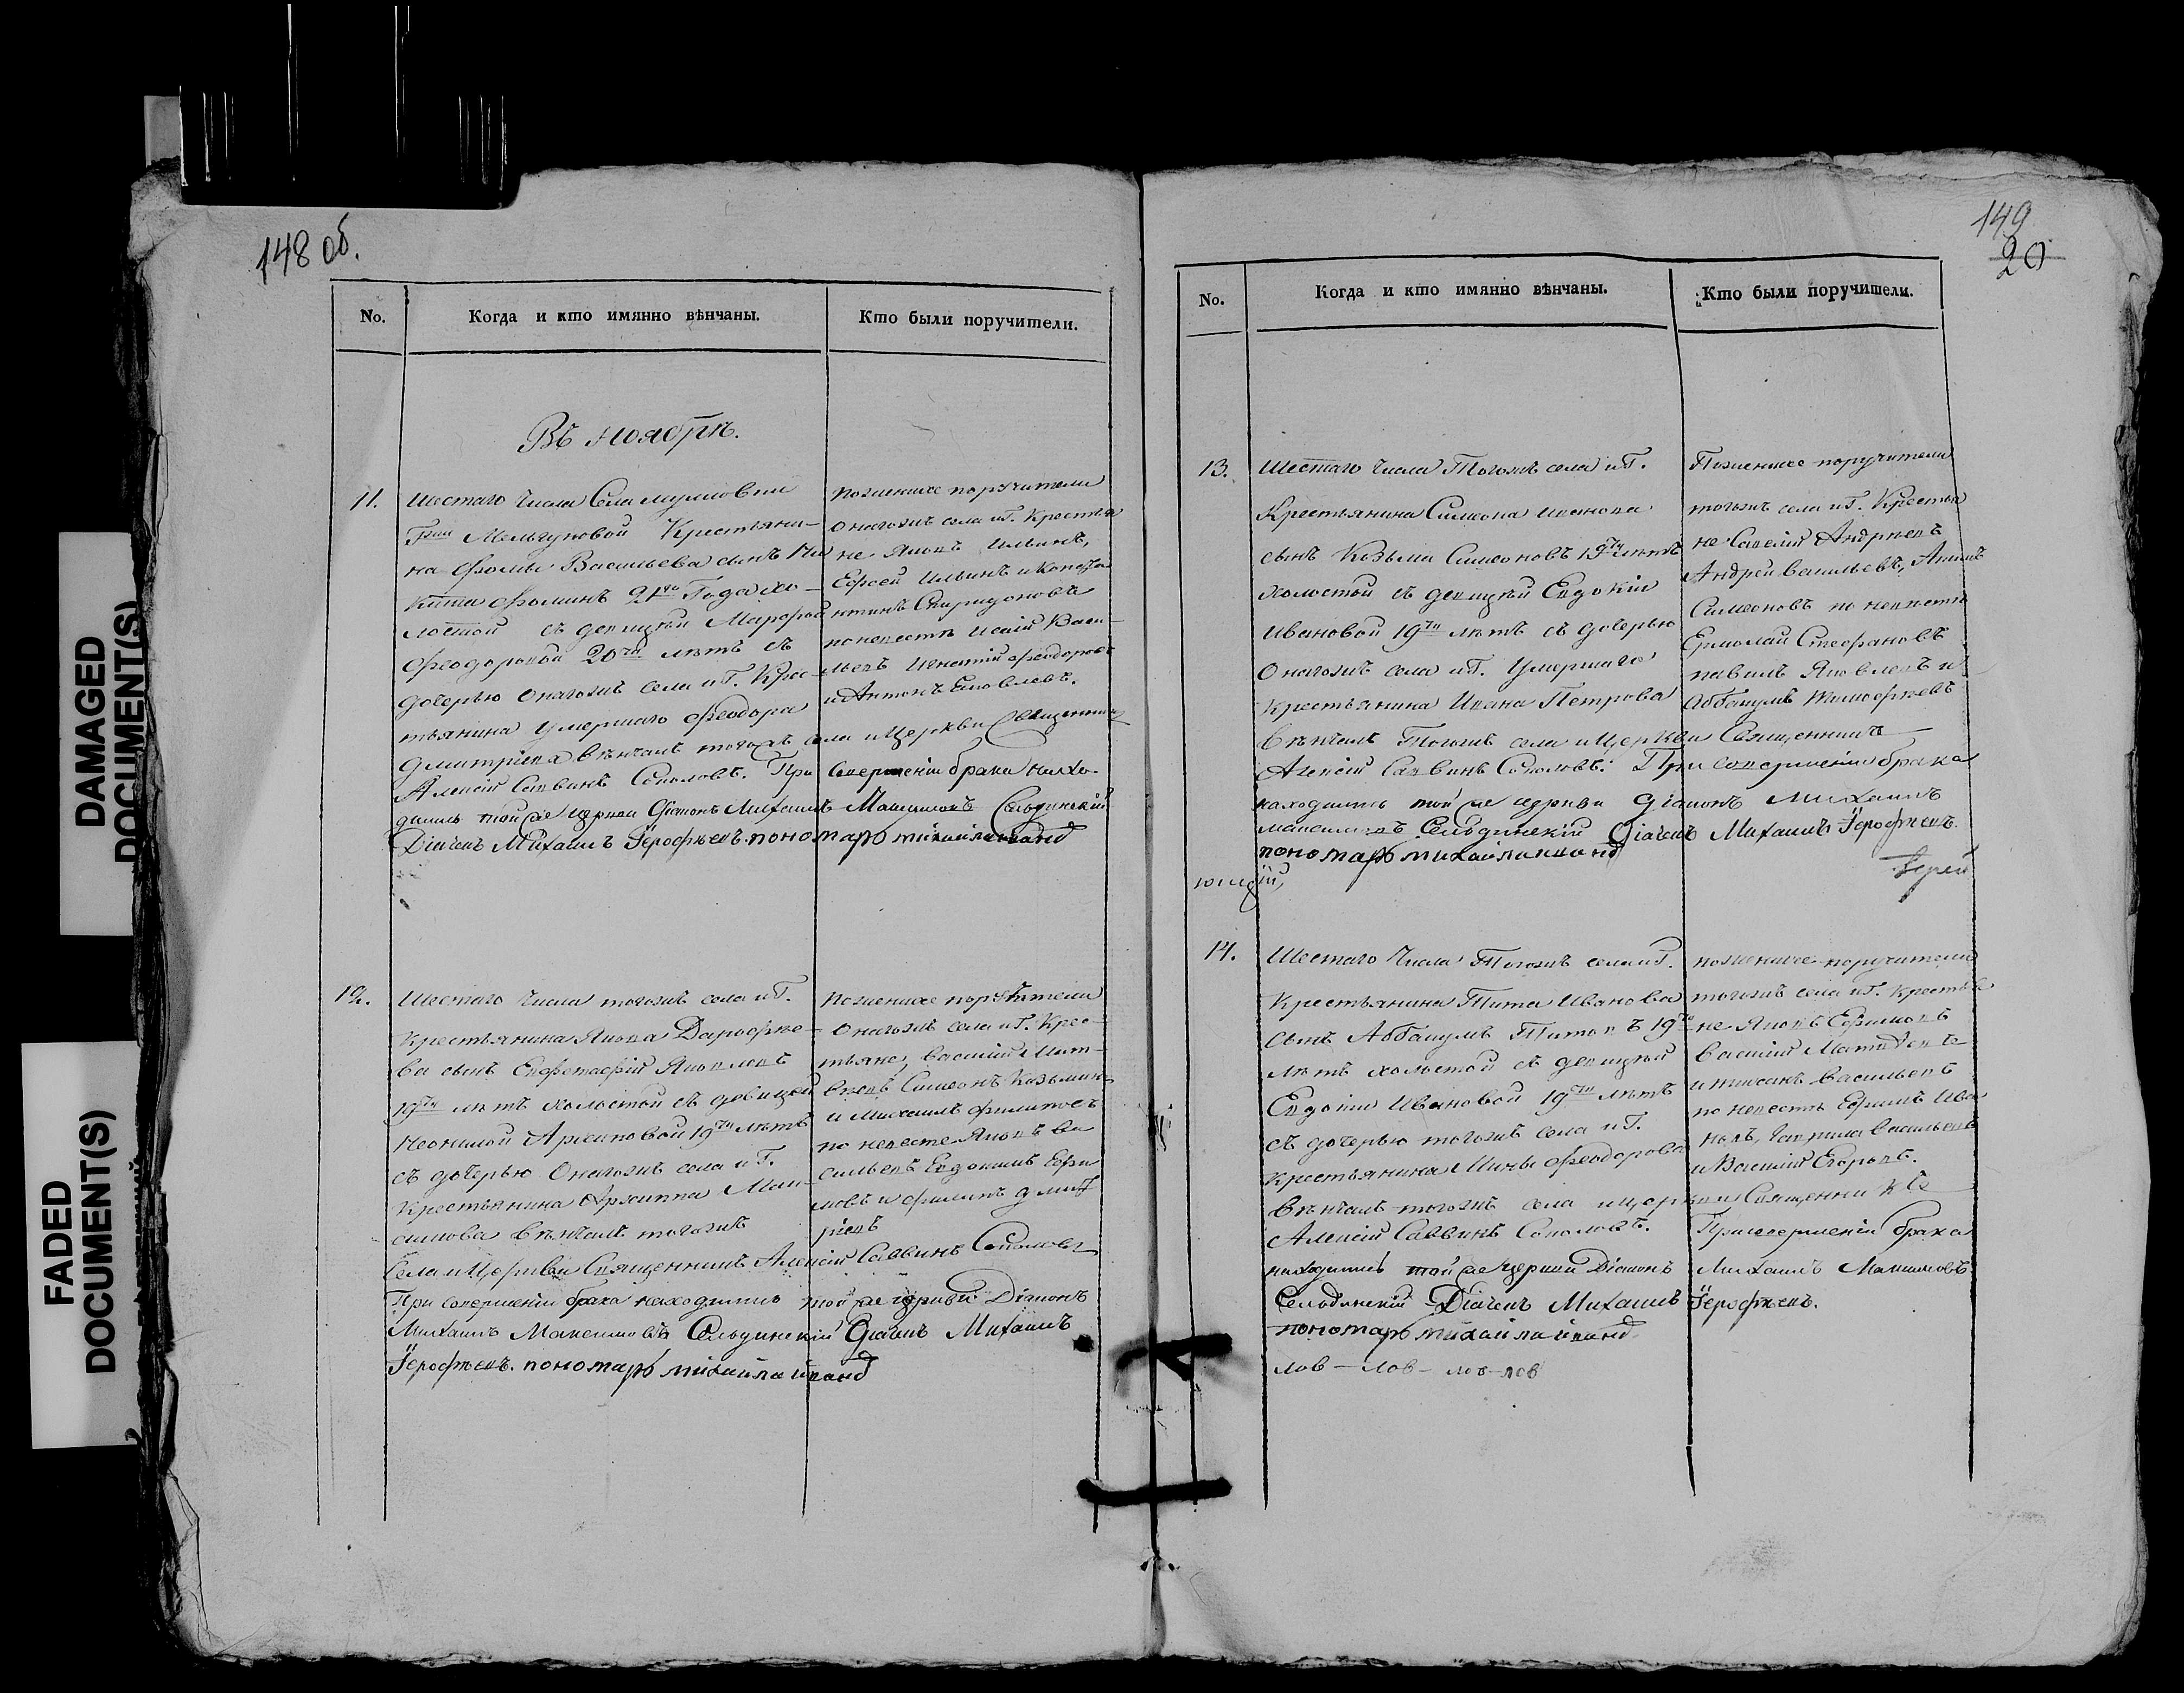 148 об.
No. Когда и кто имянно вѣнчаны. Кто были поручители.
Въ Ноябрѣ.
11.
Шестаго Числа Села
Гжи Мельгуновой Крестьяни-
на Фомы Васильева сынъ Ни
кита Фоминъ 21го Года хо-
лостой съ девицей Марфой
Феодоровой 20ти лѣтъ съ
дочерью Оногожъ села и Г. Крес-
тьянина умершаго Феодора
Дмитріева вѣнчалъ тогожъ села и Церкви Священникъ
Алексій Саввинъ Соколовъ. При совершеніи брака нахо-
дились той же церкви Діаконъ Михаилъ Максимовъ Сельдинскій
Діачекъ Михаилъ Іерофѣевъ. пономарь михайла иванд
поженихе поручители
Оногожъ села и Г. Крестья
не Яковъ Ильинъ,
Ефсей Ильинъ и Конста
нтинъ Спиридоновъ
поневестѣ Исаій Васи-
льевъ Игнатій Феодоровъ
и Антонъ Яковлевъ.
12.
Шестаго Числа тогожъ села и Г.
Крестьянина Якова Дарофѣе-
ва сынъ Яковлевъ
19ти лѣтъ холостой съ девицей
Неонилой Архиповой 19ти лѣтъ
съ дочерью Оногожъ села и Г.
Крестьянина Архиппа Мак-
симова вѣнчалъ тогожъ
Села и Церкви Священникъ Алексій Саввинъ Соколовъ
При совершеніи брака находились той же церкви Діаконъ
Михаилъ Максимовъ Сельдинскій Діачекъ Михаилъ
Іерофѣевъ. пономарь михайла иванд
Поженихе поручители
Оногожъ села и Г. Крес-
тьяне, Василій Мат-
вѣевъ Симеонъ Козьмин
и Михаилъ Филиповъ
по невесте Яковъ Ва
сильевъ Евдокимъ Ефи
мовъ и Филипъ Дмит
ріевъ
149
20
No. Когда и кто имянно вѣнчаны. Кто были поручители.
13.
Шестаго Числа Тогожъ села и Г.
Крестьянина Симеона Иванова
сынъ Козьма Симеоновъ 19ти лѣтъ
холостой съ девицей Евдокіи
Ивановой 19ти лѣтъ съ дочерью
Оногожъ села и Г. Умершаго
Крестьянина Ивана Петрова
Вѣнчалъ Тогожъ села и Церкви Священникъ
Алексій Саввинъ Соколовъ. При совершеніи брака
находились той же церкви Діаконъ Михаилъ
Максимовъ Сельдинскій Діачекъ Михаилъ Іерофѣевъ.
пономарь михайла иванд
Іерей
Поженихе поручители
тогожъ села и Г. Крестья
не Савелій Андреевъ
Андрей Васильевъ,
Симеоновъ по невестѣ
Ермолай Стефановъ
павилъ Яковлевъ и
Аббакумъ Тимофѣевъ
14.
Шестаго Числа Тогожъ села и Г.
Крестьянина Тита Иванова
сынъ Аббакумъ Титовъ 19ти
лѣтъ холостой съ девицей
Евдокіи Ивановой 19ти лѣтъ
съ дочерью тогожъ села и Г.
Крестьянина Мины Феодорова
Вѣнчалъ тогожъ села и церкви Священникъ
Алексій Саввинъ Соколовъ. При совершеніи брака
находились той же Церкви Діаконъ Михаилъ Максимовъ
Сельдинскій Діачекъ Михаилъ Іерофѣевъ.
пономарь михайла иванд
лов - лов - лов - лов
поженихе поручители
тогожъ села и Г. Крестья
не Яковъ Ефимовъ
Василій Матвѣевъ
и Васильевъ
по невестѣ Ефимъ Ива
новъ, Гаврила Васильевъ
и Василій Егоровъ.
DAMAGED
DOCUMENT(S)
FADED
DOCUMENT(S)